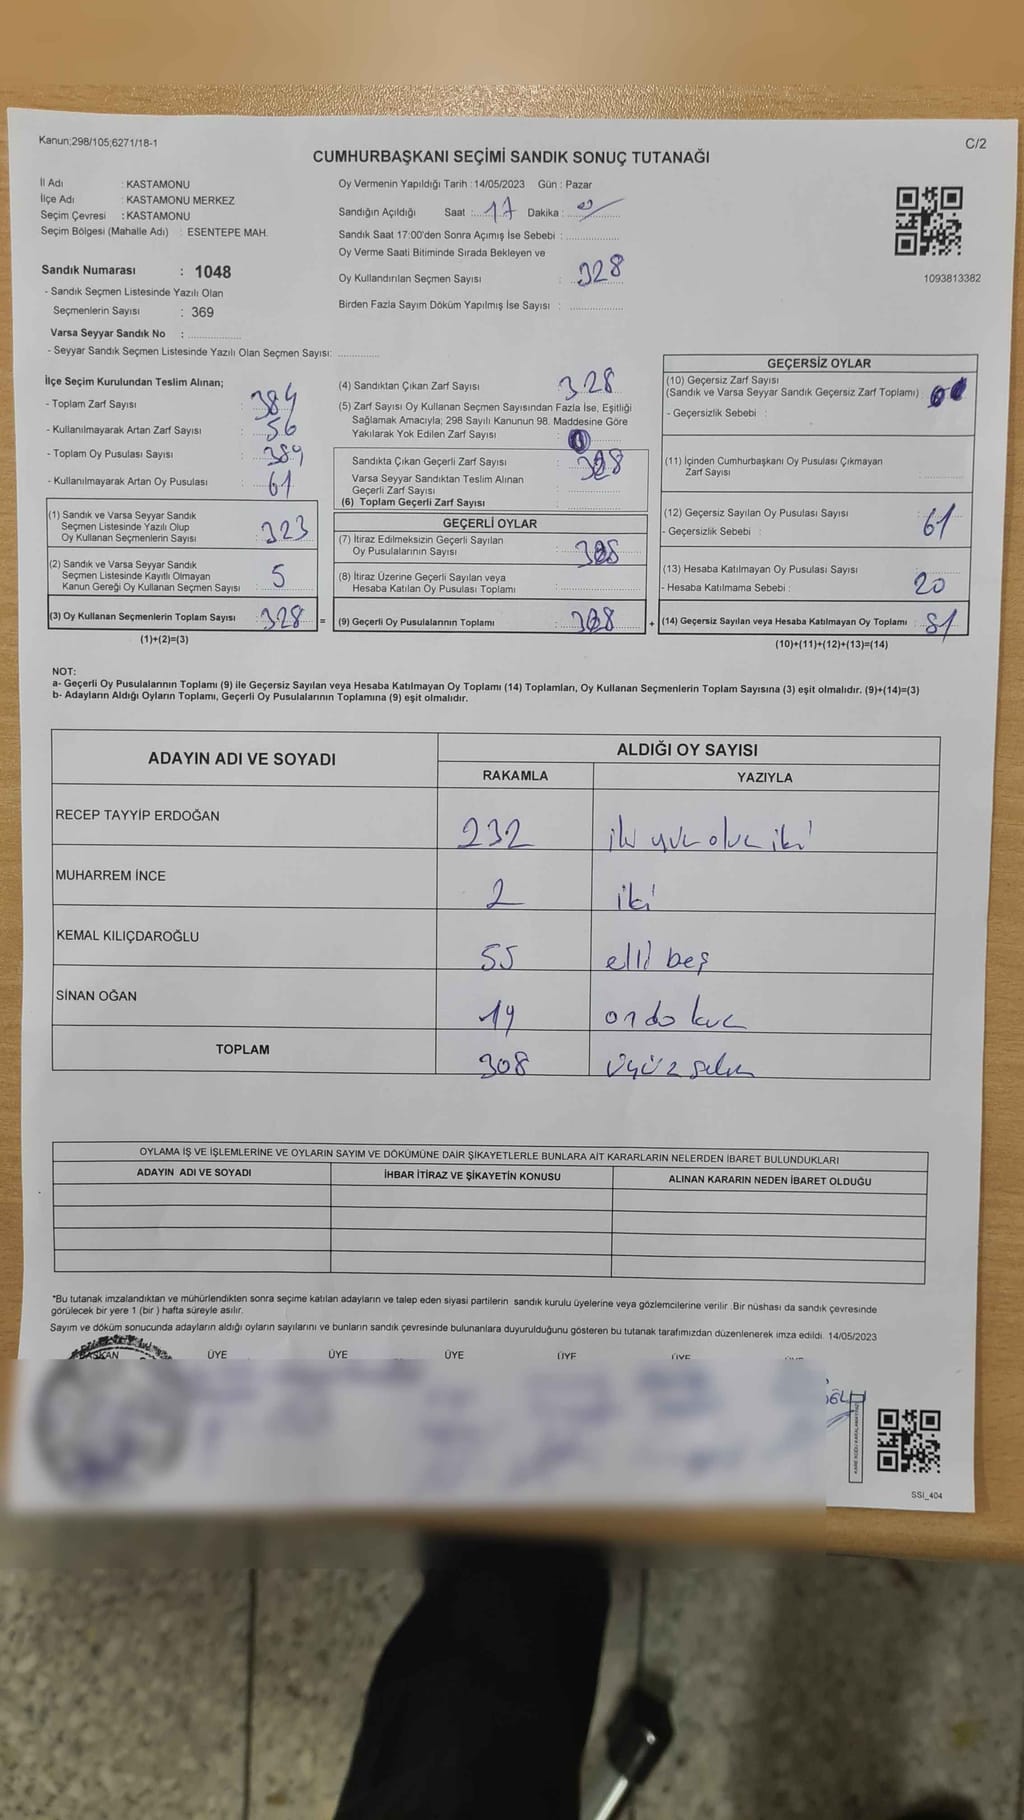 Kanun;298/105;6271/18-1
C/2
CUMHURBAŞKANI SEÇİMİ SANDIK SONUÇ TUTANAĞI
İl Adı : KASTAMONU
İlçe Adı : KASTAMONU MERKEZ
Seçim Çevresi : KASTAMONU
Seçim Bölgesi (Mahalle Adı) : ESENTEPE MAH.
Sandık Numarası : 1048
- Sandık Seçmen Listesinde Yazılı Olan
Seçmenlerin Sayısı : 369
Varsa Seyyar Sandık No :
- Seyyar Sandık Seçmen Listesinde Yazılı Olan Seçmen Sayısı:
Oy Vermenin Yapıldığı Tarih : 14/05/2023 Gün : Pazar
Sandığın Açıldığı Saat : 17 Dakika :
Sandık Saat 17:00'den Sonra Açımış İse Sebebi :
Oy Verme Saati Bitiminde Sırada Bekleyen ve
Oy Kullandırılan Seçmen Sayısı : 328
Birden Fazla Sayım Döküm Yapılmış İse Sayısı :
1093813382
İlçe Seçim Kurulundan Teslim Alınan;
- Toplam Zarf Sayısı : 384
- Kullanılmayarak Artan Zarf Sayısı : 56
- Toplam Oy Pusulası Sayısı : 389
- Kullanılmayarak Artan Oy Pusulası : 61
(1) Sandık ve Varsa Seyyar Sandık
Seçmen Listesinde Yazılı Olup
Oy Kullanan Seçmenlerin Sayısı : 323
(2) Sandık ve Varsa Seyyar Sandık
Seçmen Listesinde Kayıtlı Olmayan
Kanun Gereği Oy Kullanan Seçmen Sayısı : 5
(3) Oy Kullanan Seçmenlerin Toplam Sayısı : 328 =
(1)+(2)=(3)
(4) Sandıktan Çıkan Zarf Sayısı : 328
(5) Zarf Sayısı Oy Kullanan Seçmen Sayısından Fazla İse, Eşitliği
Sağlamak Amacıyla; 298 Sayılı Kanunun 98. Maddesine Göre
Yakılarak Yok Edilen Zarf Sayısı :
Sandıkta Çıkan Geçerli Zarf Sayısı : 328
Varsa Seyyar Sandıktan Teslim Alınan
Geçerli Zarf Sayısı :
(6) Toplam Geçerli Zarf Sayısı :
GEÇERLİ OYLAR
(7) İtiraz Edilmeksizin Geçerli Sayılan
Oy Pusulalarının Sayısı : 308
(8) İtiraz Üzerine Geçerli Sayılan veya
Hesaba Katılan Oy Pusulası Toplamı :
(9) Geçerli Oy Pusulalarının Toplamı : 308 +
GEÇERSİZ OYLAR
(10) Geçersiz Zarf Sayısı
(Sandık ve Varsa Seyyar Sandık Geçersiz Zarf Toplamı) :
- Geçersizlik Sebebi :
(11) İçinden Cumhurbaşkanı Oy Pusulası Çıkmayan
Zarf Sayısı
(12) Geçersiz Sayılan Oy Pusulası Sayısı : 61
- Geçersizlik Sebebi :
(13) Hesaba Katılmayan Oy Pusulası Sayısı
- Hesaba Katılmama Sebebi : 20
(14) Geçersiz Sayılan veya Hesaba Katılmayan Oy Toplamı : 81
(10)+(11)+(12)+(13)=(14)
NOT:
a- Geçerli Oy Pusulalarının Toplamı (9) ile Geçersiz Sayılan veya Hesaba Katılmayan Oy Toplamı (14) Toplamları, Oy Kullanan Seçmenlerin Toplam Sayısına (3) eşit olmalıdır. (9)+(14)=(3)
b- Adayların Aldığı Oyların Toplamı, Geçerli Oy Pusulalarının Toplamına (9) eşit olmalıdır.
ADAYIN ADI VE SOYADI
ALDIĞI OY SAYISI
RAKAMLA YAZIYLA
RECEP TAYYİP ERDOĞAN 232 iki yüz otuz iki
MUHARREM İNCE 2 iki
KEMAL KILIÇDAROĞLU 55 elli beş
SİNAN OĞAN 19 on dokuz
TOPLAM 308 üçyüz sekiz
OYLAMA İŞ VE İŞLEMLERİNE VE OYLARIN SAYIM VE DÖKÜMÜNE DAİR ŞİKAYETLERLE BUNLARA AİT KARARLARIN NELERDEN İBARET BULUNDUKLARI
ADAYIN ADI VE SOYADI İHBAR İTİRAZ VE ŞİKAYETİN KONUSU ALINAN KARARIN NEDEN İBARET OLDUĞU
*Bu tutanak imzalandıktan ve mühürlendikten sonra seçime katılan adayların ve talep eden siyasi partilerin sandık kurulu üyelerine veya gözlemcilerine verilir .Bir nüshası da sandık çevresinde
görülecek bir yere 1 (bir ) hafta süreyle asılır.
Sayım ve döküm sonucunda adayların aldığı oyların sayılarını ve bunların sandık çevresinde bulunanlara duyurulduğunu gösteren bu tutanak tarafımızdan düzenlenerek imza edildi. 14/05/2023
BAŞKAN ÜYE ÜYE ÜYE ÜYE ÜYE
SSI_404